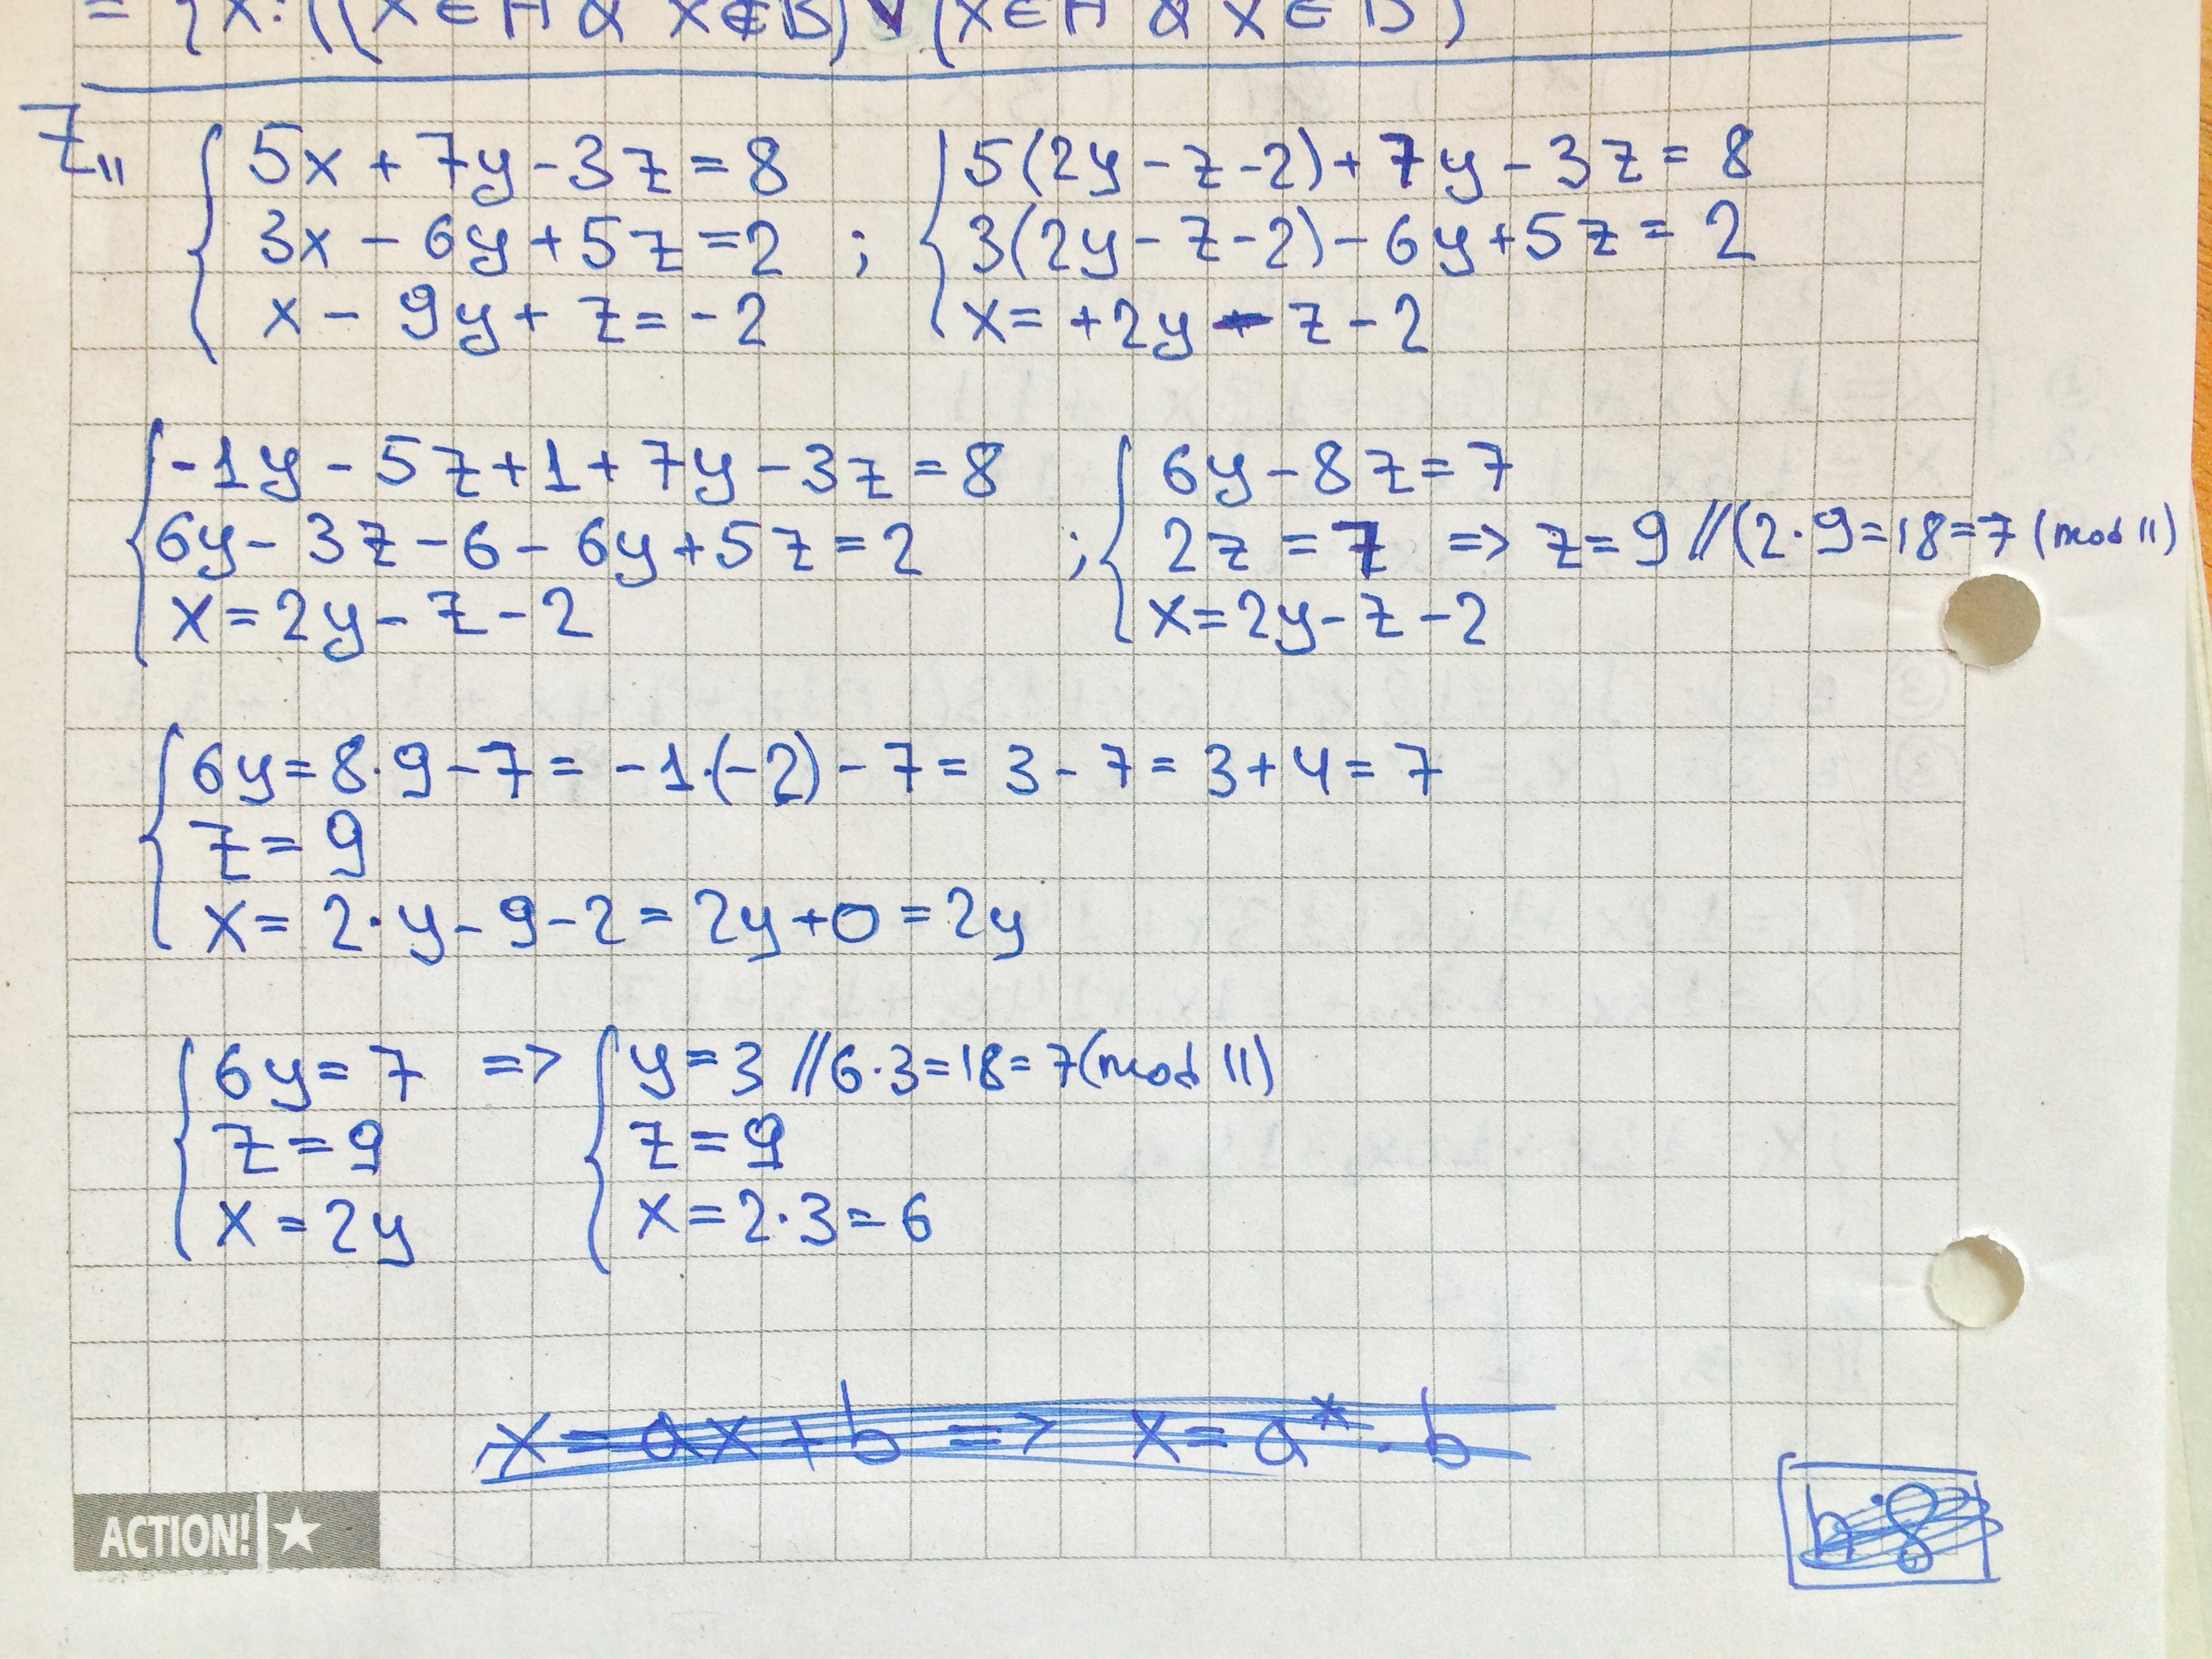 = {x: ((x∈A & x∉B) ∨ (x∈A & x∈B)
Z₁₁
5x + 7y - 3z = 8
3x - 6y + 5z = 2 ;
x - 9y + z = -2
5(2y - z - 2) + 7y - 3z = 8
3(2y - z - 2) - 6y + 5z = 2
x = +2y - z - 2
-1y - 5z + 1 + 7y - 3z = 8
6y - 3z - 6 - 6y + 5z = 2 ;
x = 2y - z - 2
6y - 8z = 7
2z = 7 => z = 9 //(2·9=18=7 (mod 11)
x = 2y - z - 2
6y = 8·9 - 7 = -1·(-2) - 7 = 3 - 7 = 3 + 4 = 7
z = 9
x = 2·y - 9 - 2 = 2y + 0 = 2y
6y = 7 =>
z = 9
x = 2y
y = 3 //6·3=18=7(mod 11)
z = 9
x = 2·3 = 6
x = ax + b => x = a*·b
ACTION! ★